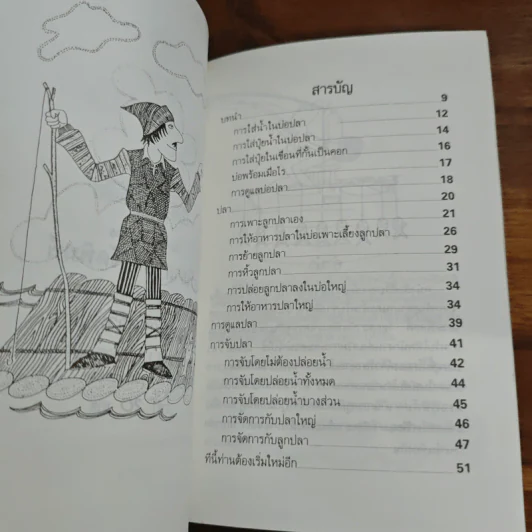 สารบัญ
บทนำ 9
การใส่น้ำในบ่อปลา 12
การใส่ปุ๋ยน้ำในบ่อปลา 14
การใส่ปุ๋ยในเขื่อนที่กั้นเป็นคอก 16
บ่อพร้อมเมื่อไร 17
การดูแลบ่อปลา 18
ปลา 20
การเพาะลูกปลาเอง 21
การให้อาหารปลาในบ่อเพาะเลี้ยงลูกปลา 26
การย้ายลูกปลา 29
การหิ้วลูกปลา 31
การปล่อยลูกปลาลงในบ่อใหญ่ 34
การให้อาหารปลาใหญ่ 34
การดูแลปลา 39
การจับปลา 41
การจับโดยไม่ต้องปล่อยน้ำ 42
การจับโดยปล่อยน้ำทั้งหมด 44
การจับโดยปล่อยน้ำบางส่วน 45
การจัดการกับปลาใหญ่ 46
การจัดการกับลูกปลา 47
ทีนี้ท่านต้องเริ่มใหม่อีก 51